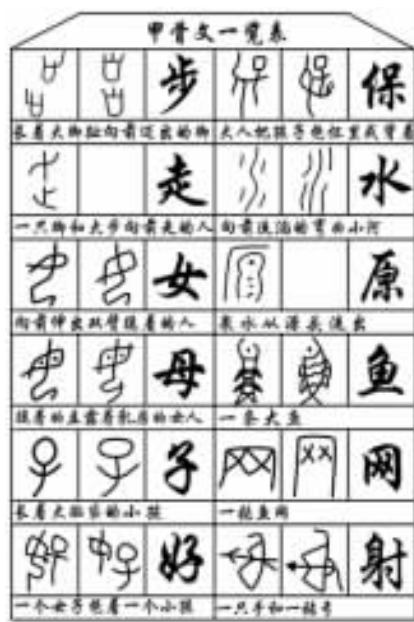 甲骨文一览表
步 保
长着大脚趾向前迈出的脚 大人把孩子抱怀里或背着
走 水
一只脚和大步向前走的人 向前流淌的弯曲小河
女 原
向前伸出双臂跪着的人 泉水从源头流出
母 鱼
跪着的显露着乳房的女人 一条大鱼
子 网
长着大脑袋的小孩 一张鱼网
好 射
一个女子抱着一个小孩 一只手和一张弓